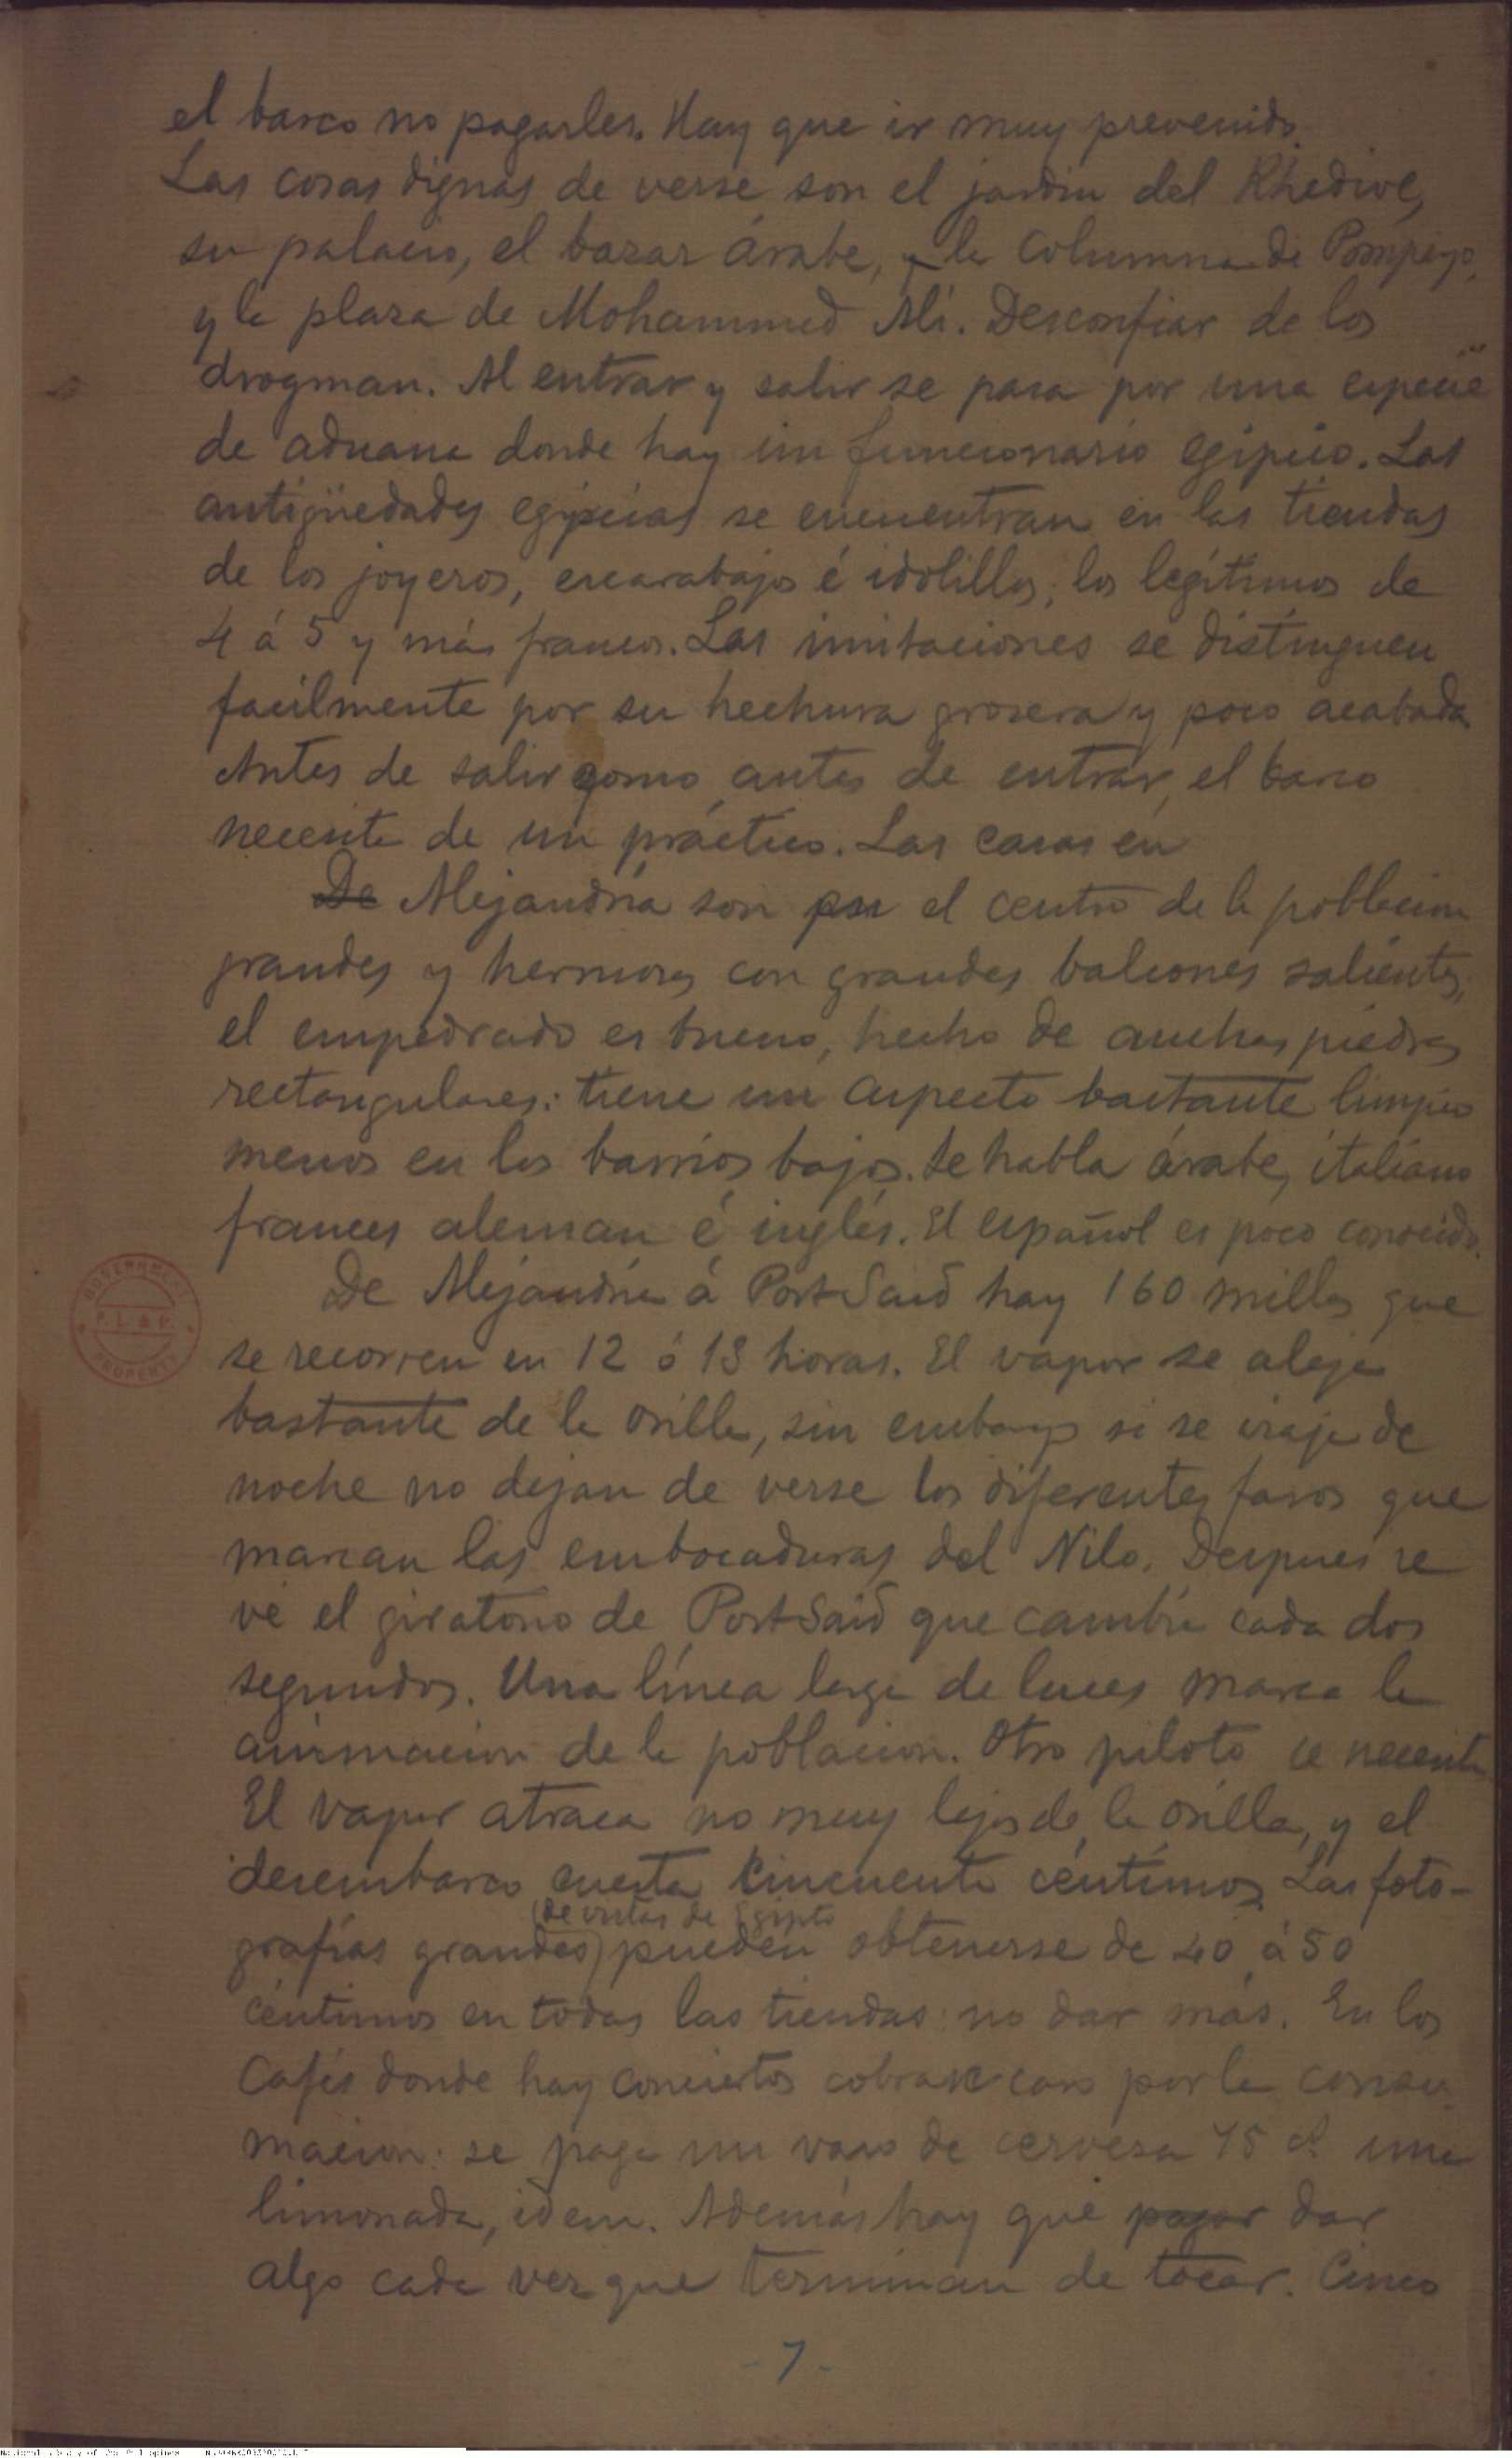 el barco no pagarles. Hay que ir muy prevenido.
Las cosas dignas de verse son el jardin del Khedive,
su palacio, el bazar árabe, y la Columna de Pompeyo,
y la plaza de Mohammed Alí. Desconfiar de los
drogman. Al entrar y salir se pasa por una especie
de aduana donde hay un funcionario egipcio. Las
antigüedades egipcias se encuentran en las tiendas
de los joyeros, escarabajos é idolillos; los legítimos de
4 á 5 y más francos. Las imitaciones se distinguen
facilmente por su hechura grosera y poco acabada
Antes de salir como antes de entrar, el barco
necesita de un práctico. Las casas en
De Alejandría son en el centro de la poblacion
grandes y hermosas con grandes balcones salientes;
el empedrado es bueno, hecho de anchas piedras
rectangulares: tiene un aspecto bastante limpio
menos en los barrios bajos. Se habla árabe, italiano
frances aleman é inglés. El español es poco conocido.
De Alejandria á Port Said hay 160 millas que
se recorren en 12 ó 13 horas. El vapor se aleja
bastante de la orilla, sin embargo si se viaja de
noche no dejan de verse los diferentes faros que
marcan las embocaduras del Nilo. Despues se
vé el giratorio de Port Said que cambia cada dos
segundos. Una línea larga de luces marca la
animacion de la poblacion. Otro piloto se necesita
El vapor atraca no muy lejos de la orilla, y el
desembarco cuesta cincuenta céntimos. Las foto-
(de vistas de Egipto
grafías grandes) pueden obtenerse de 40 á 50
céntimos en todas las tiendas: no dar más. En los
Cafés donde hay conciertos cobrase caro por la consu-
macion: se paga un vaso de cerveza 75 cs. una
limonada, idem. Además hay que pagar dar
algo cada vez que terminan de tocar. Cinco
- 7 -
GOVERNMENT
P.L. & P.
PROPERTY
National Library of the Philippines